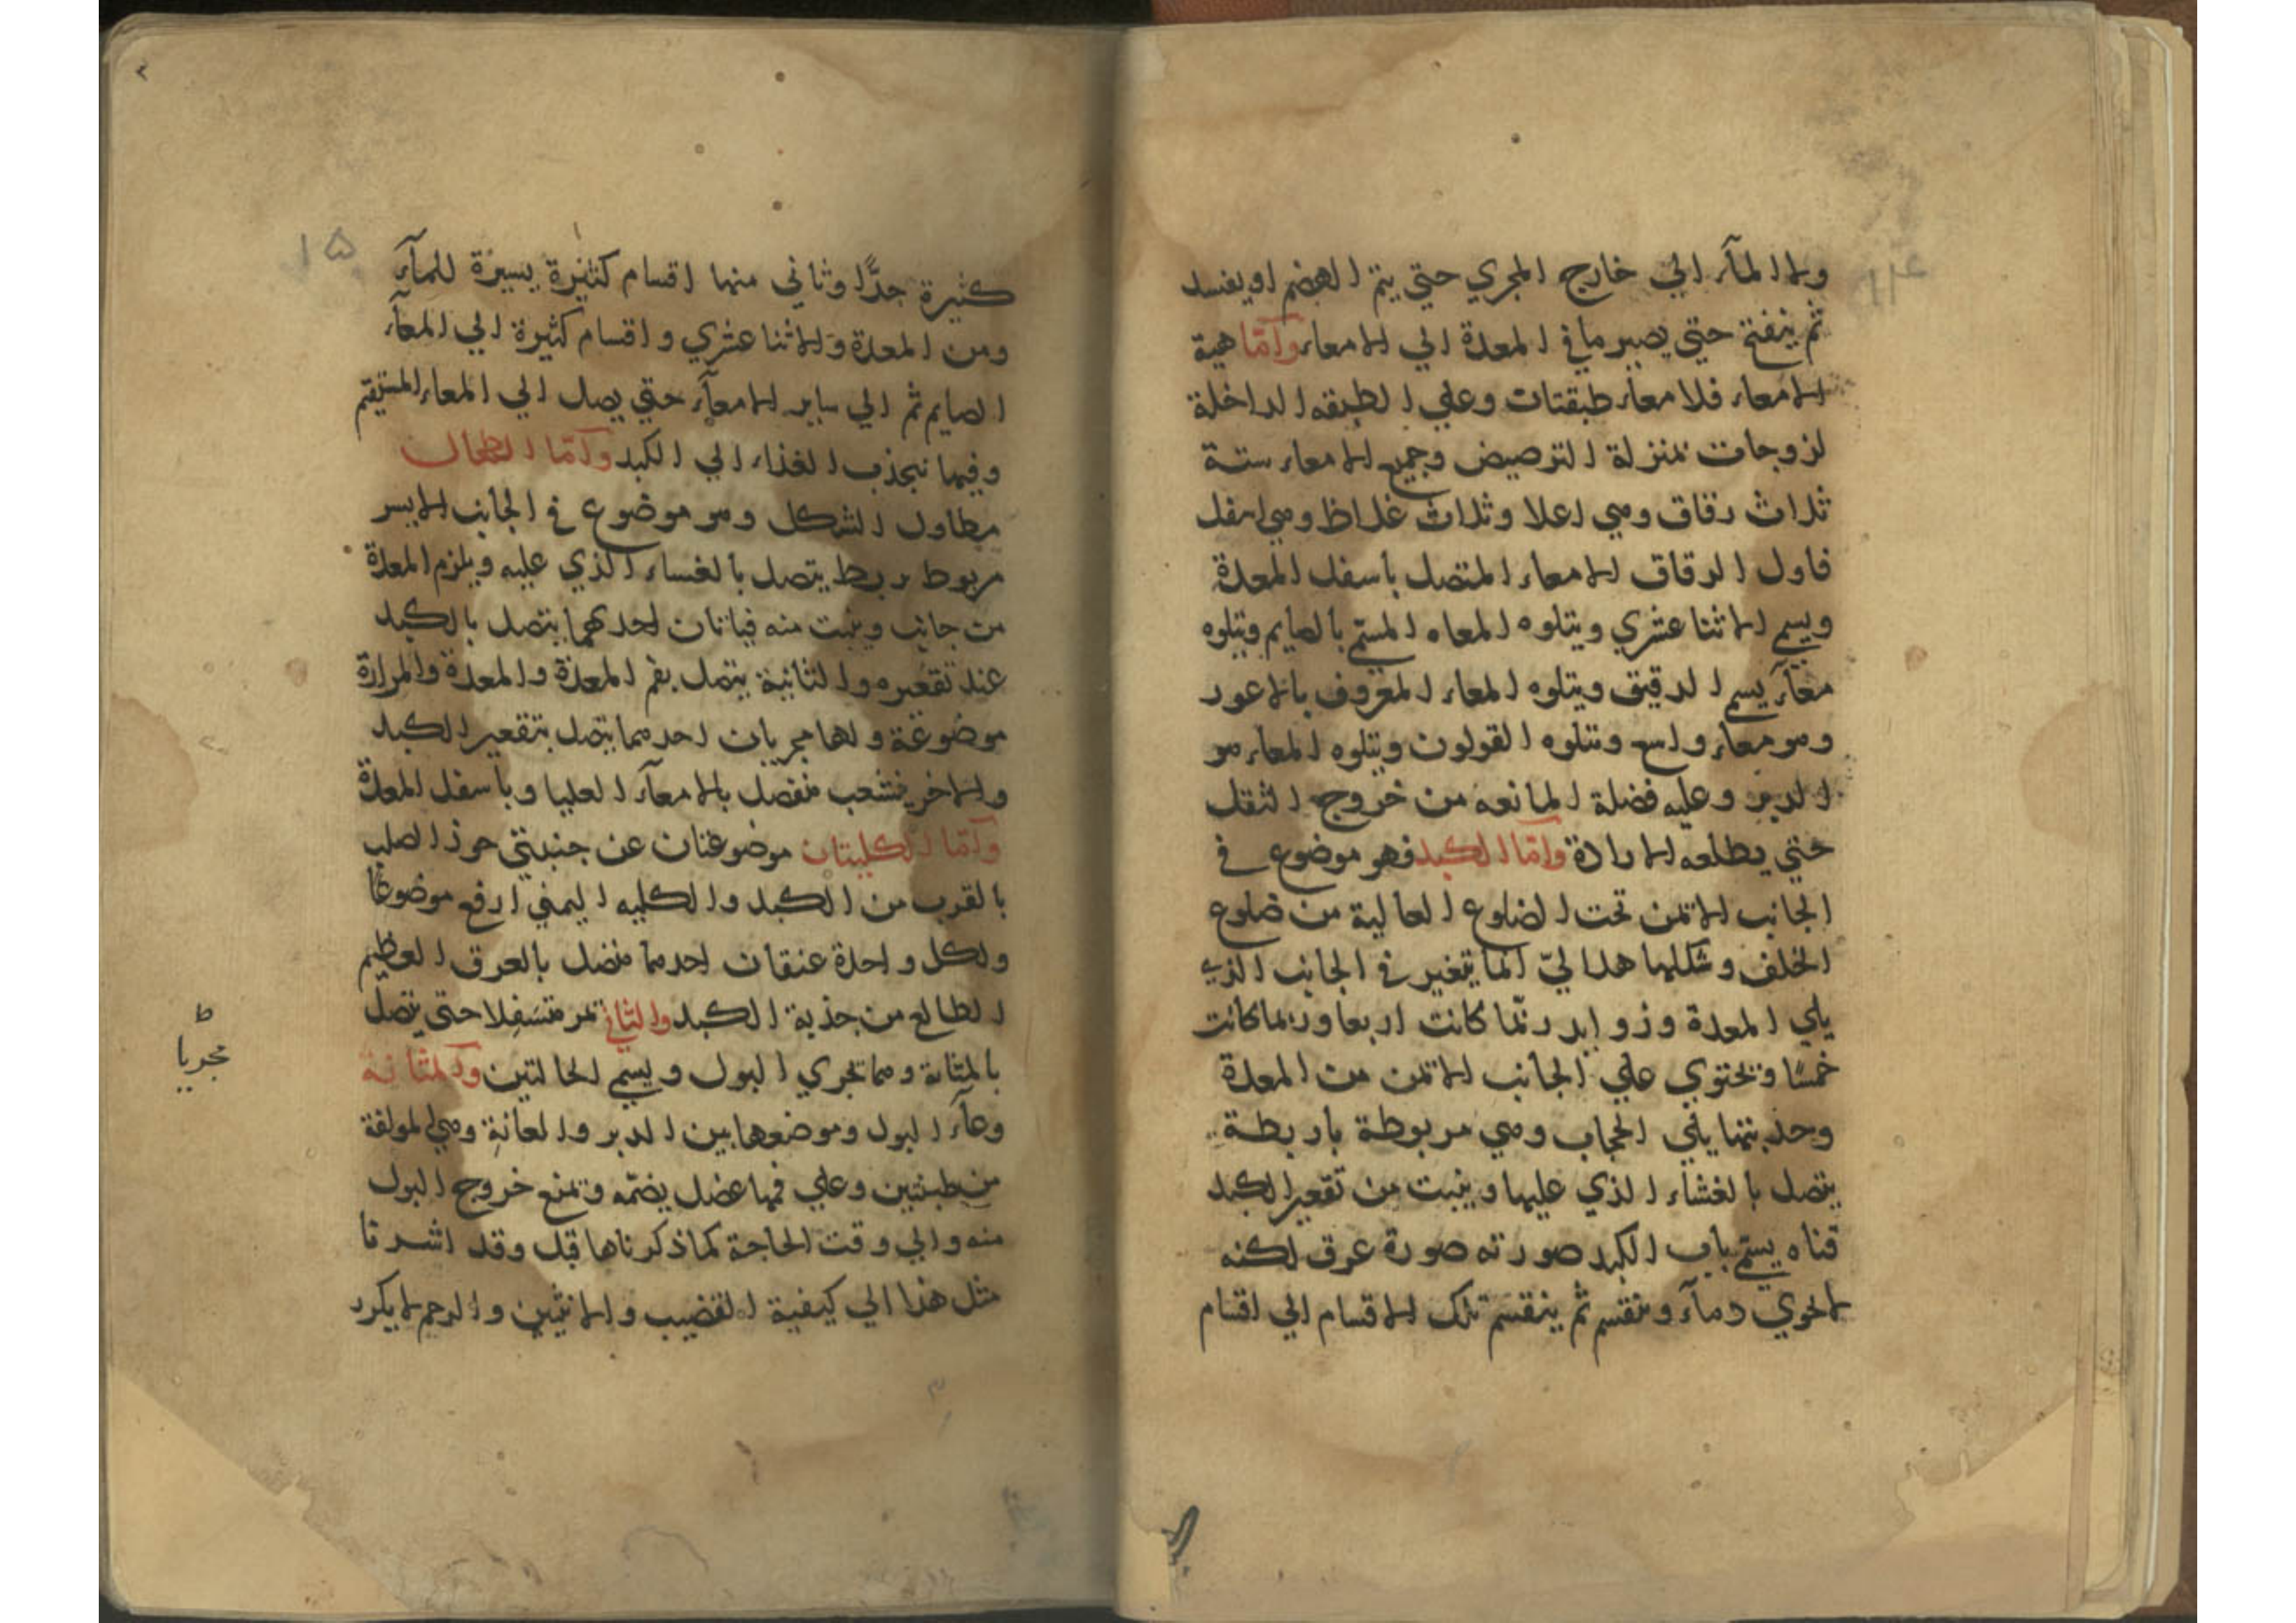 ولا المآء الي خارج المجري حتي يتم الهضم او يفسد
ثم ينفتح حتي يصير ما في المعدة الي الامعاء وامّا هية
الامعاء فلامعاء طبقتات وعلي الطبقه الداخلة
لزوجات بمنزلة الترصيص وجميع الامعاء ستة
ثلاث دقاق وهي اعلا وثلاث غلاظ وهي اسفل
فاول الدقاق الامعاء المتصل باسفل المعدة
ويسمي الاثنا عشري ويتلوه المعاه المسمّي بالصايم ويتلوه
معآء يسمي الدقيق ويتلوه المعاء المعروف بالاعور
وهو معاء واسع ويتلوه القولون ويتلوه المعاء هو
الدبر وعليه فضلة المانعه من خروج الثقل
حتي يطلعه الارادة وامّا الكبد فهو موضوع في
الجانب الايمن تحت الضلوع العالية من ضلوع
الخلف وشكلها هلاليّ انما يتغير في الجانب الذي
يلي المعدة وزوايد ربّما كانت اربعا وربما كانت
خمسًا ويحتوي علي الجانب الايمن من المعدة
وحدبتها يلي الحجاب وهي مربوطة باربطة
يتصل بالغشاء الذي عليها وينبت من تقعير الكبد
قناه يسمّي باب الكبد صورته صورة عرق لكنه
لا يحوي دمآء وينقسم ثم ينقسم تلك الاقسام الي اقسام
١٥
كثيرة جدًّا وثاني منها اقسام كثيرة يسيرة للمآء
ومن المعدة والاثنا عشري واقسام كثيرة الي المعآء
الصايم ثم الي ساير الامعآء حتي يصل الي المعاء المستقيم
وفيها ينجذب الغذاء الي الكبد وامّا الطحال
مطاول الشكل وهو موضوع في الجانب الايسر
مربوط بربط يتصل بالغساء الذي عليه ويلزم المعدة
من جانب وينبت منه قناتان احدهما يتصل بالكبد
عند تقعيره والثانية يتصل بفم المعدة والمعدة والمرارة
موضوعة ولها مجريان احدهما يتصل بتقعير الكبد
والاخر ينشعب متصل بالامعآء العليا وباسفل المعدة
وامّا الكليتان موضوعتان عن جنبتي حرز الصلب
بالقرب من الكبد والكليه اليمني ارفع موضوعًا
ولكل واحدة عنقان احدهما متصل بالعرق العظيم
الطالع من حذبة الكبد والثاني تمر متسفلا حتى يتصل
بالمثانة وهما مجري البول ويسمي الحالتين والمثانة
وعآء البول وموضعها بين الدبر والعانة وهي المولفة
من طبقتين وعلي فمها عضل يضمّه ويمنع خروج البول
منه والي وقت الحاجة كما ذكرناها قبل وقد اشرنا
مثل هذا الي كيفية القضيب والانثيين والرحم لا يكرر
ط
مجريا